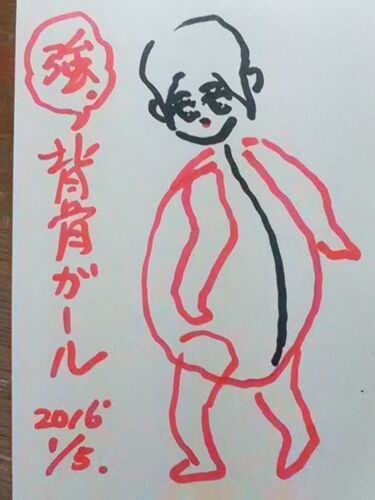 強、
背骨ガール
2016
1/5.